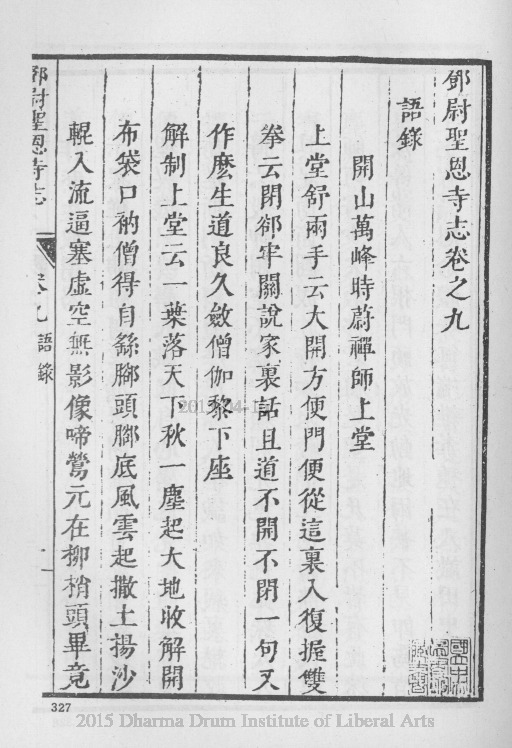 鄧尉聖恩寺志卷之九
語錄
開山萬峰時蔚禪師上堂
上堂舒兩手云大開方便門便從這裏入復握雙
拳云閉卻牢關說家裏話且道不開不閉一句又
作麽生道良久斂僧伽黎下座
解制上堂云一葉落天下秋一塵起大地收解開
布袋口衲僧得自繇腳頭腳底風雲起撒土揚沙
輥入流逼塞虛空無影像啼鶯元在柳梢頭畢竟
鄧尉聖恩寺志
卷九 語錄
一
327
2015 Dharma Drum Institute of Liberal Arts